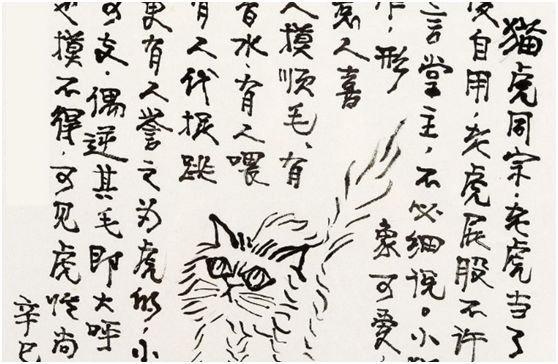 猫虎同宗·老虎当了
愎自用·老虎屁股不许
言堂主,不必细说。小
小,形象可爱,
惹人喜
人摸顺毛,有
香水,有人喂
有人代捉跳
更有人誉之为虎师,小
可支·偶逆其毛即大呼
也摸不得,可见虎性尚
辛巳